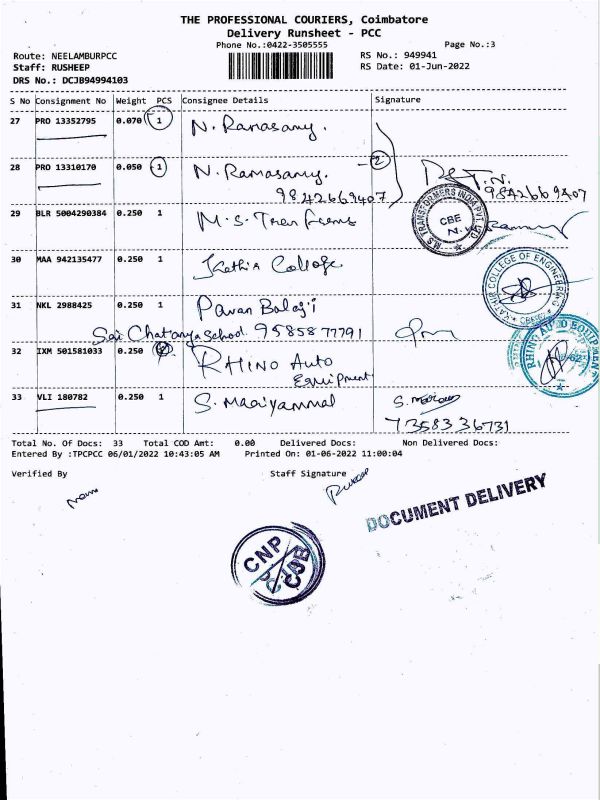 THE PROFESSIONAL COURIERS, Coimbatore
Delivery Runsheet - PCC
Phone No.:0422-3505555
Page No.:3
Route: NEELAMBURPCC
RS No.: 949941
Staff: RUSHEEP
RS Date: 01-Jun-2022
DRS No.: DCJB94994103
S No Consignment No Weight PCS Consignee Details Signature
27 PRO 13352795 0.070 1 N. Ramasamy.
28 PRO 13310170 0.050 1 N. Ramasamy. 2
9842669407
9842669407
29 BLR 5004290384 0.250 1 M.S.
M.S TRANSFORMERS INDIA PVT. LTD
CBE
30 MAA 942135477 0.250 1 Kathir College
KATHIR COLLEGE OF ENGINEERING
31 NKL 2988425 0.250 1 Pavan Balaji
Sai Chatanya School. 9585877791
32 IXM 501581033 0.250 RHINO Auto
Equipment
RHINO AUTO EQUIPMEN
33 VLI 180782 0.250 1 S. Maaiyammal
7358336731
Total No. Of Docs: 33 Total COD Amt: 0.00 Delivered Docs: Non Delivered Docs:
Entered By :TPCPCC 06/01/2022 10:43:05 AM Printed On: 01-06-2022 11:00:04
Verified By Staff Signature
DOCUMENT DELIVERY
CNP
CJB